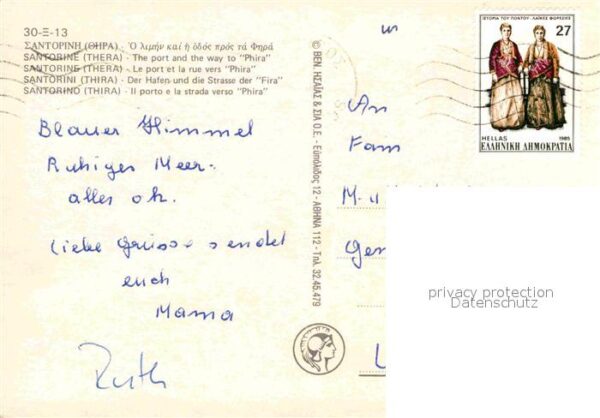 30-Ξ-13
ΣΑΝΤΟΡΙΝΗ (ΘΗΡΑ) · Ὁ λιμήν καί ἡ ὁδός πρός τά Φηρά
SANTORINE (THERA) · The port and the way to "Phira"
SANTORINE (THERA) · Le port et la rue vers "Phira"
SANTORINI (THIRA) · Der Hafen und die Strasse der "Fira"
SANTORINO (THIRA) · Il porto e la strada verso "Phira"
Blauer Himmel
Ruhiges Meer.
alles ok.
Liebe Grüsse sendet
euch
Mama
Ruth
© ΒΕΝ ΗΣΑΪΑΣ & ΣΙΑ Ο.Ε. - Εὐπόλιδος 12 - ΑΘΗΝΑ 112 - Τηλ. 32.45.479
ΙΣΤΟΡΙΑ ΤΟΥ ΠΟΝΤΟΥ - ΛΑΪΚΕΣ ΦΟΡΕΣΙΕΣ
27
HELLAS
1985
ΕΛΛΗΝΙΚΗ ΔΗΜΟΚΡΑΤΙΑ
An
Fam
privacy protection
Datenschutz